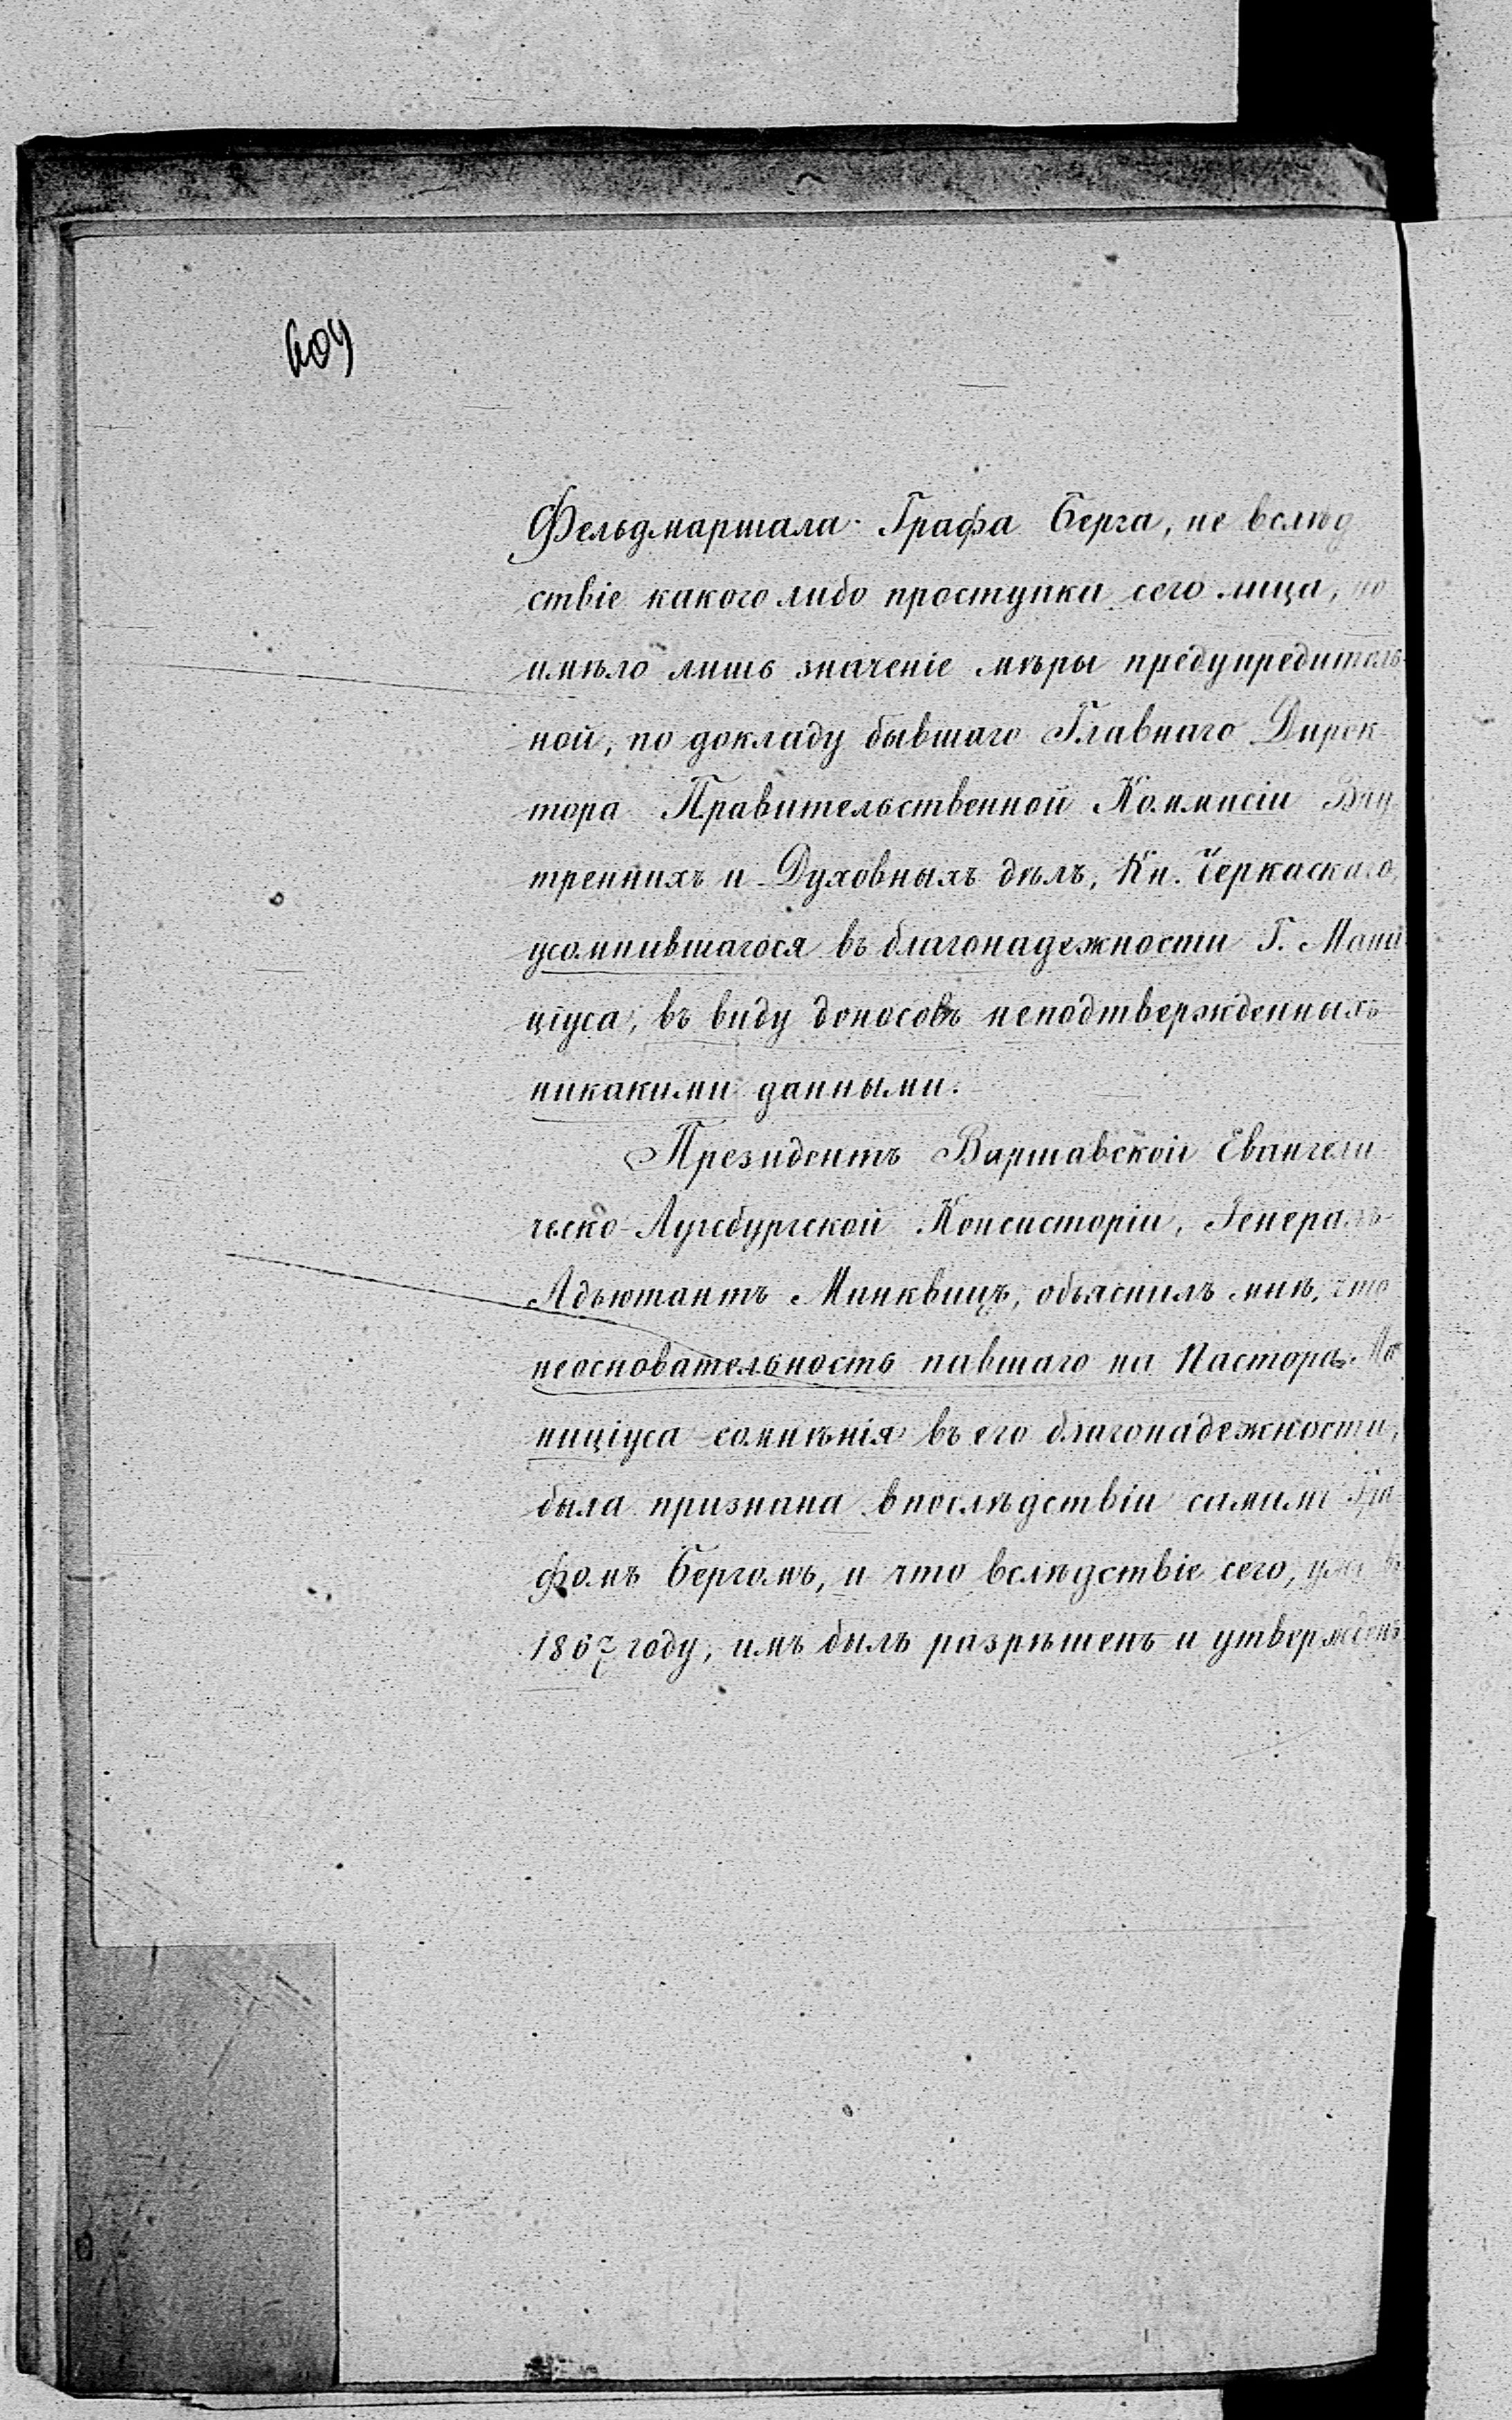 409
Фельдмаршала Графа Берга, не вслѣд
ствіе какого либо проступка сего лица, но
имѣло лишь значеніе мѣры предупредитель-
ной, по докладу бывшаго Главнаго Дирек-
тора Правительственной Коммисіи Вну
тренних ъ и Духовныхъ дѣлъ, Кн. Черкаскаго,
усомнившагося въ благонадежности Г. Мани
ціуса, въ виду доносовъ неподтвержденныхъ
никакими данными.
Президентъ Варшавской Евангели-
ческо-Аугсбургской Консисторіи, Генералъ-
Адъютантъ Минквицъ, объяснилъ мнѣ, что
неосновательность павшаго на Пастора Ма
ниціуса сомнѣнія въ его благонадежности,
была признана впослѣдствіи самимъ Гра
фомъ Бергомъ, и что вслѣдствіе сего, уже въ
1867 году, имъ былъ разрѣшенъ и утвержденъ